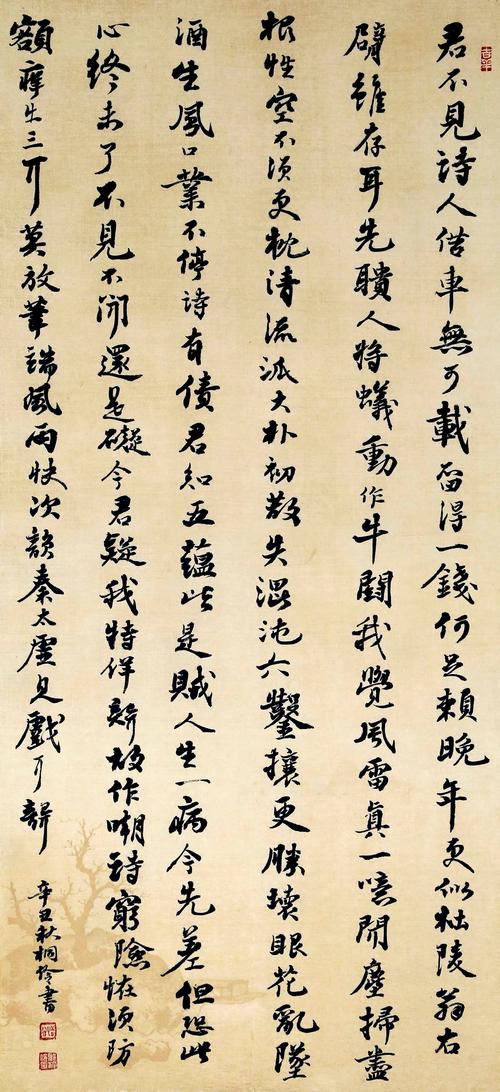 君不見詩人借車無可載留得一錢何足賴晚年更似杜陵翁右
臂雖存耳先聵人將蟻動作牛鬭我覺風雷真一噫聞塵掃盡
根性空不須更枕清流派大朴初散失混沌六鑿攘更勝敗眼花亂墜
酒生風口業不停詩有債君知五蘊皆是賊人生一病今先差但恐此
心終未了不見不聞還是礙今君疑我特佯聾故作嘲詩窮險怪須防
額癢出三耳莫放筆端風雨快次韻秦太虛見戲耳聾
辛丑秋桐書